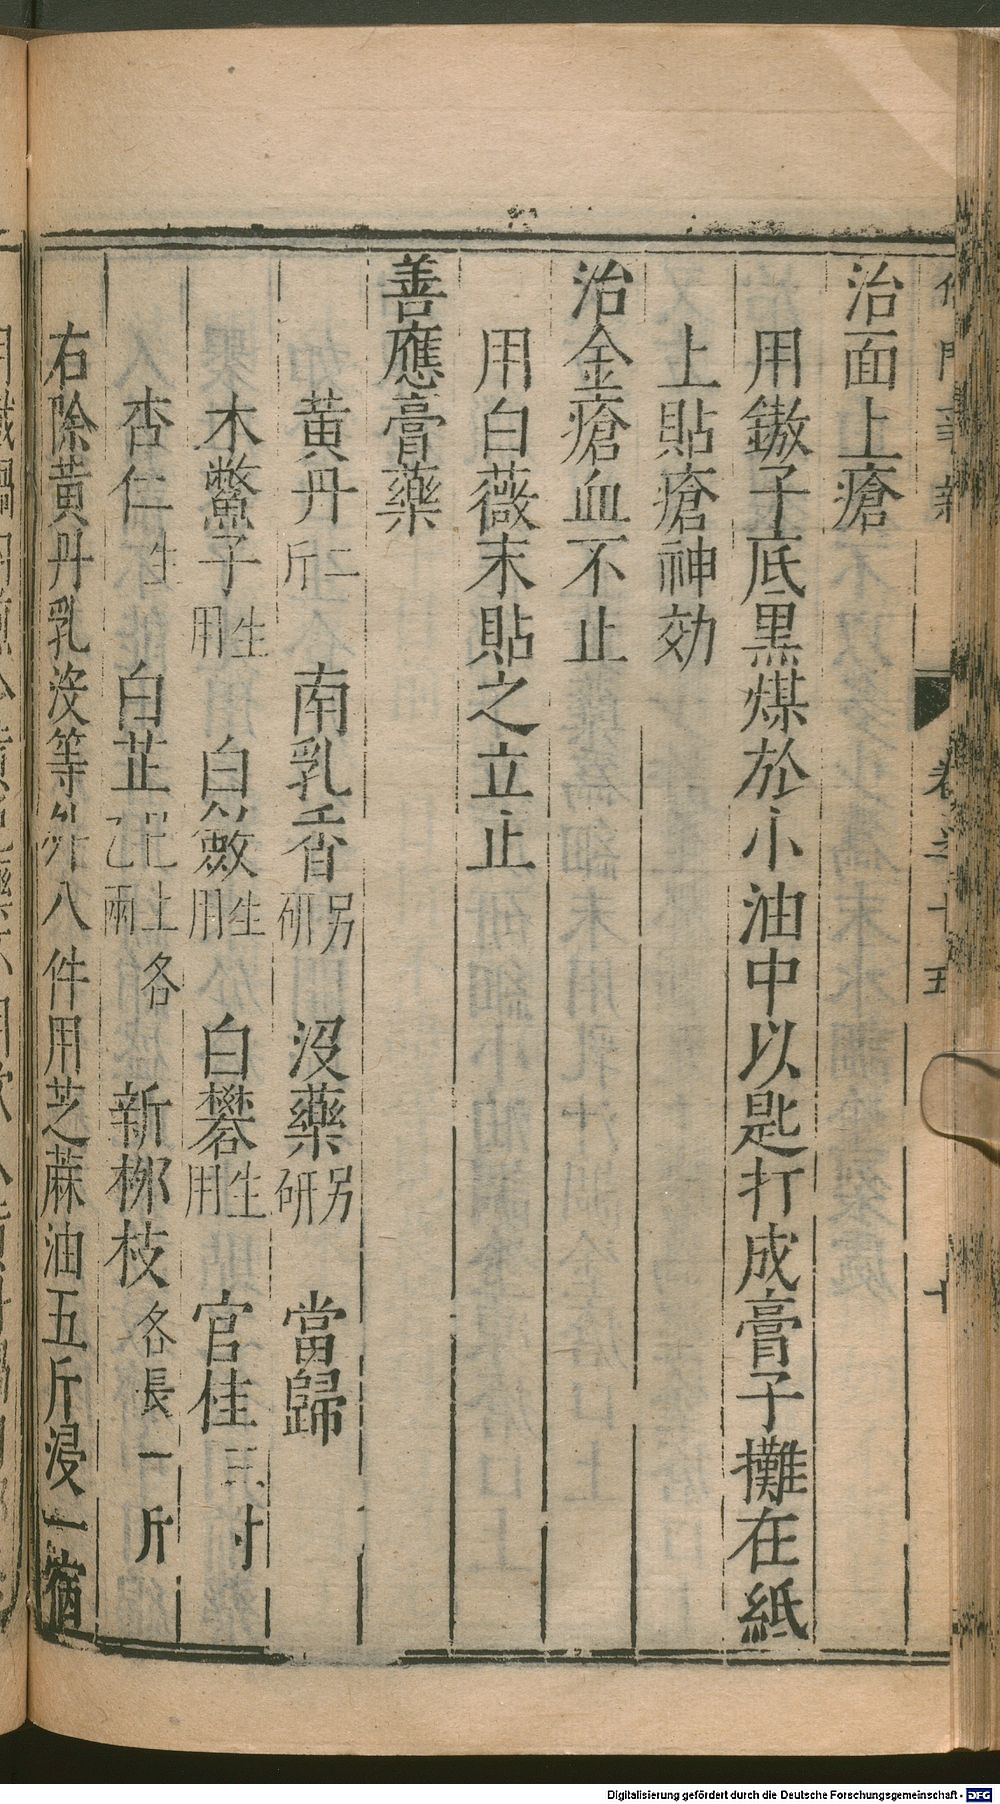 治面上瘡
用鏾子底黑煤於小油中以匙打成膏子攤在紙
上貼瘡神効
治金瘡血不止
用白薇末貼之立止
善應膏藥
黃丹二斤 南乳香另研 沒藥另研 當歸
木鱉子生用 白斂生用 白礬生用 官桂三寸
杏仁生 白芷已上各乙兩 新柳枝各長一斤
右除黃丹乳沒等外八件用芝蔴油五斤浸一宿
卷之十五
十
Digitalisierung gefördert durch die Deutsche Forschungsgemeinschaft - DFG